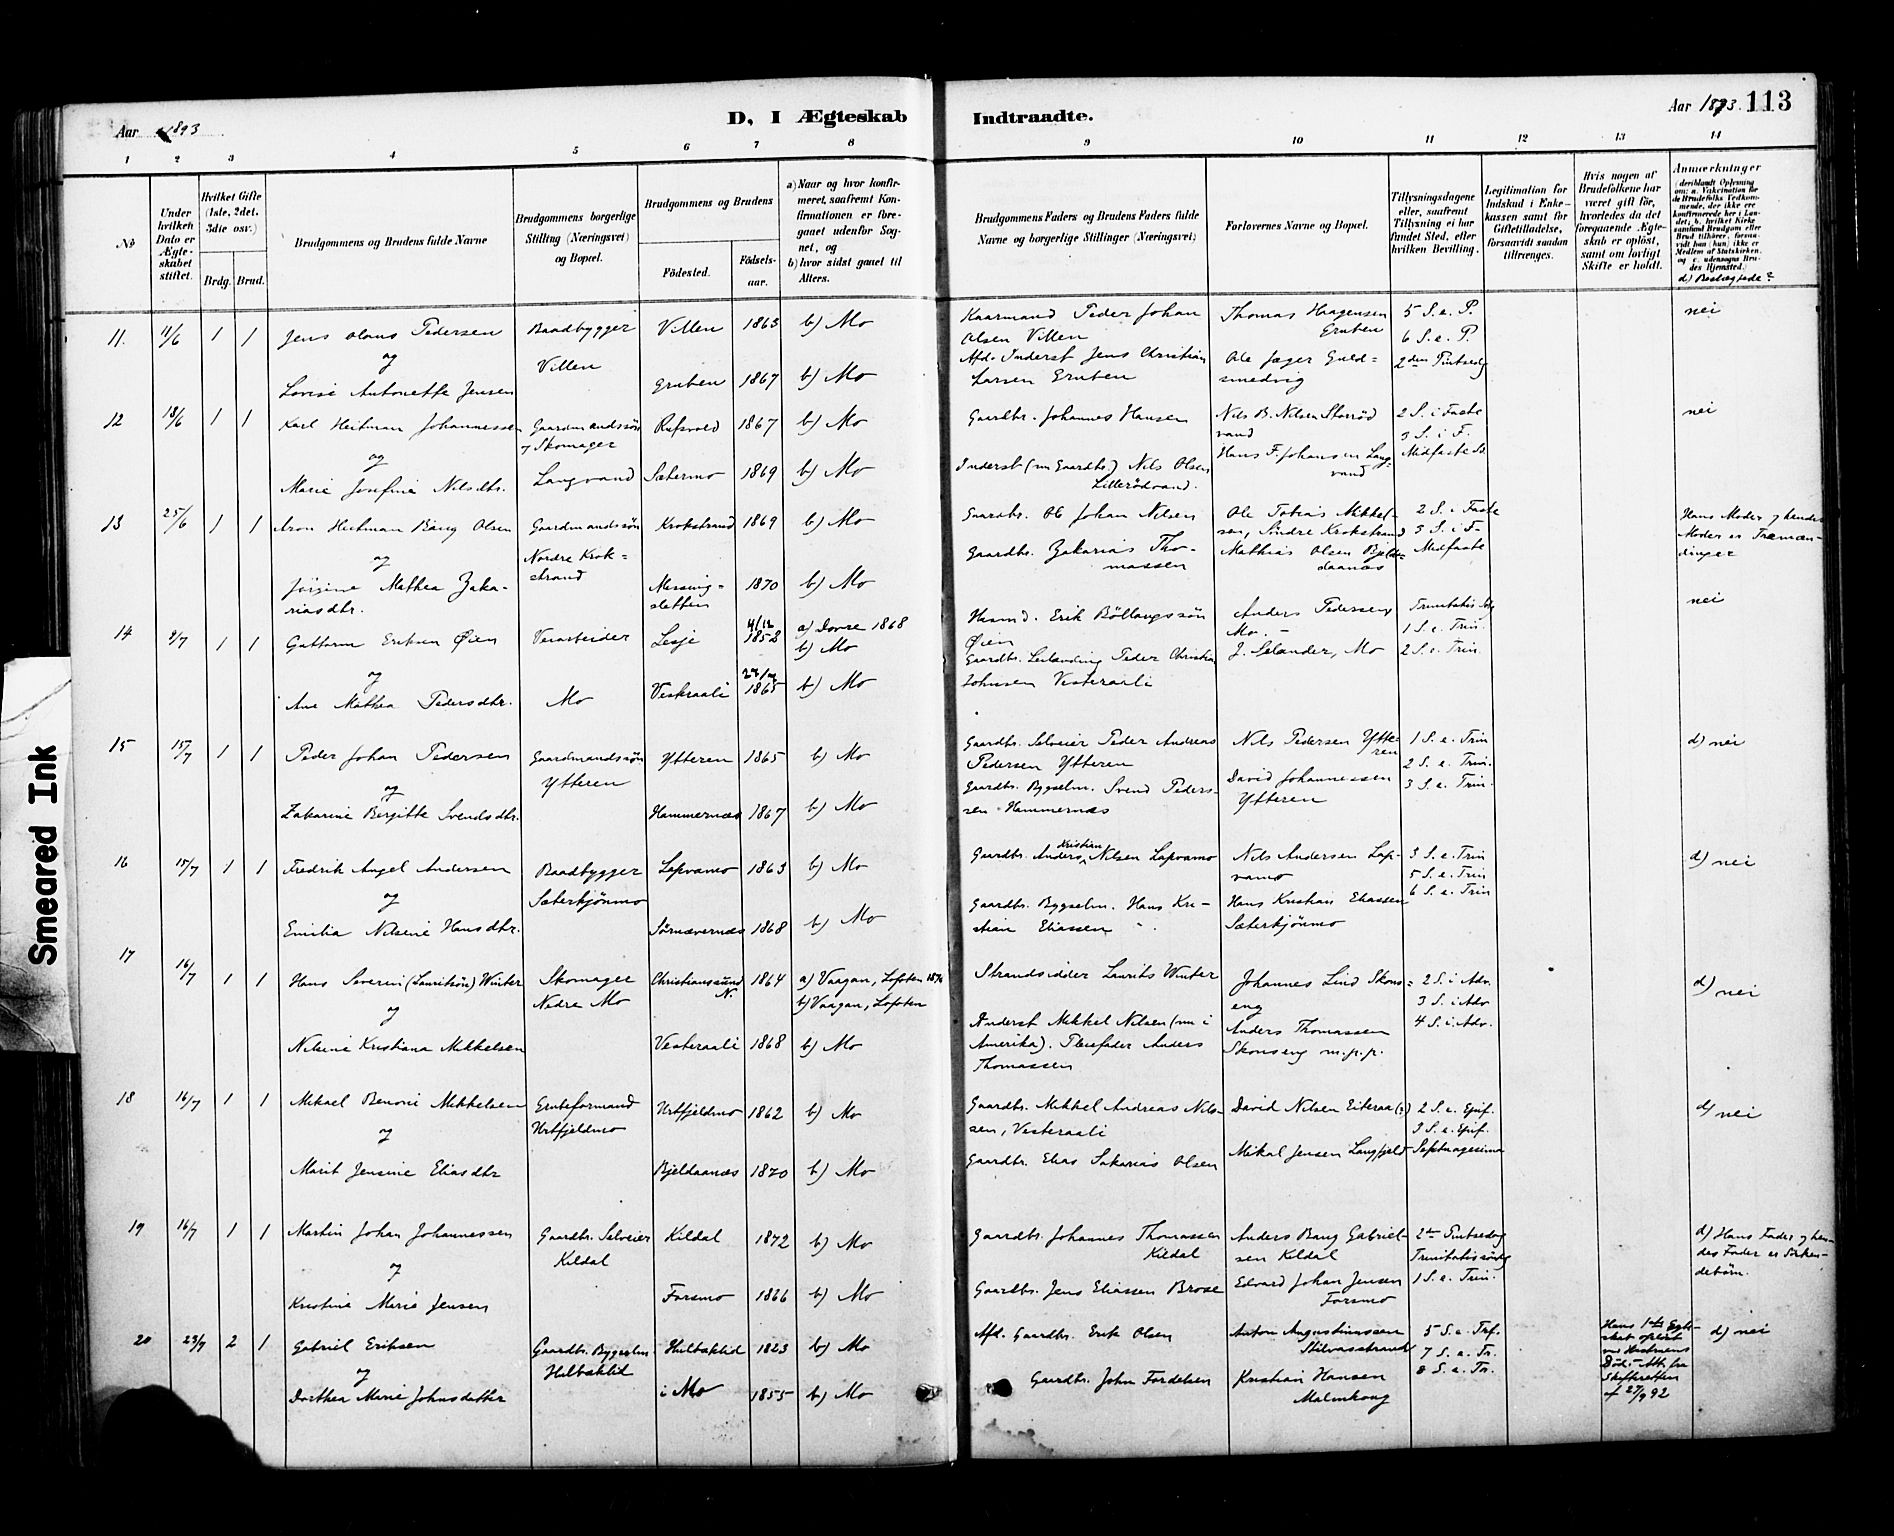 Smeared Ink
Aar 1893
D, I Ægteskab
Indtraadte.
Aar 1893. 113
1 2 3 4 5 6 7 8 9 10 11 12 13 14
No
Under hvilken Dato er Ægteskabet stiftet.
Hvilket Gifte (1ste, 2det, 3die osv.)
Brdg. Brud.
Brudgommens og Brudens fulde Navne
Brudgommens borgerlige Stilling (Næringsvei) og Bopæl.
Brudgommens og Brudens
Fødested.
Fødselsaar.
a) Naar og hvor konfirmeret, saafremt Konfirmationen er foregaaet udenfor Sognet, og
b) hvor sidst gaaet til Alters.
Brudgommens Faders og Brudens Faders fulde Navne og borgerlige Stillinger (Næringsvei)
Forlovernes Navne og Bopæl.
Tillysningsdagene eller, saafremt Tillysning ei har fundet Sted, efter hvilken Bevilling.
Legitimation for Indskud i Enkekassen samt for Giftetilladelse, forsaavidt saadan tiltrænges.
Hvis nogen af Brudefolkene har været gift før, hvorledes da det foregaaende Ægteskab er opløst, samt om lovligt Skifte er holdt.
Anmærkninger
d) Beslægtede?
11. 11/6 1 1 Jens Olaus Pedersen
og
Lovise Antonette Jensen
Baadbygger
Villen
Villen 1863 b) Mo
Gruben 1867 b) Mo
Kaarmand Peder Johan
Olsen Villen
Afd. Inderst Jens Christian
Larsen Gruben
Thomas Haagensen
Gruben
Ole Jæger Guld-
smedvig
5 S. e. P.
6 S. e. P.
2den Pintsedg
nei
12 18/6 1 1 Karl Heitman Johannessen
og
Marie Josefine Nilsdtr.
Gaardmandssøn
og Skomager
Langvand
Rufsvold 1867 b) Mo
Sætermo 1869 b) Mo
Gaardbr. Johannes Hansen
Inderst (nu Gaardbr.) Nils Olsen
Lillerødvand.
Nils B. Nilsen Storrød
vand
Hans F. Johansen Lang-
vand
2 S. i Faste
3 S. i F.
Midfaste S.
nei
13 25/6 1 1 Aron Heitman Bang Olsen
og
Jørgine Mathea Zaka-
riasdtr.
Gaardmandssøn
Nordre Krok-
strand
Krokstrand 1869 b) Mo
Messing-
sletten 1870 b) Mo
Gaardbr. Ole Johan Nilsen
Gaardbr. Zakarias Tho-
massen
Ole Tobias Mikkel-
sen, Søndre Krokstrand
Mathias Olsen Bjeld-
daanæs
2 S. i Faste
3 S. i F.
Midfaste
Hans Moder og hendes
Moder er Træmæn-
dinger
14 2/7 1 1 Guttorm Eriksen Øien
og
Ane Mathea Pedersdtr.
Veiarbeider
Mo
Lesje 4/12 1852 a) Dovre 1868
b) Mo
Vesteraali 1865 b) Mo
Husmd. Erik Bøllangssøn
Øien
Gaardbr. Leilænding Peder Christian
Johnsen Vesteraali
Anders Pedersen
Mo. -
J. Selander, Mo
Trinitatis Sdg
1 S. e. Trin.
2 S. e. Trin.
nei
15 15/7 1 1 Peder Johan Pedersen
og
Zakarine Bergitte Svendsdtr.
Gaardmandssøn
Ytteren
Ytteren 1865 b) Mo
Hammernæs 1867 b) Mo
Gaardbr. Selveier Peder Andreas
Pedersen Ytteren
Gaardbr. Bygselm. Svend Peders-
sen Hammernæs
Nils Pedersen Ytte-
ren
David Johannessen
Ytteren
1 S. e. Trin
2 S. e. Trin.
3 S. e. Trin.
d) nei
16 15/7 1 1 Fredrik Angel Andersen
og
Emilia Nilsine Hansdtr.
Baadbygger
Sæterkjønmo
Lapvamo 1863 b) Mo
Sørnævernæs 1868 b) Mo
Gaardbr. Anders Kristian Nilsen Lapvamo
Gaardbr. Bygselm. Hans Kri-
stian Eliassen
Nils Andersen Lap-
vamo
Hans Kristian Eliassen
Sæterkjønmo
3 S. e. Trin
5 S. e. Trin
6 S. e. Trin
d) nei
17 16/7 1 1 Hans Severin (Lauritsøn) Winter
og
Nilsine Kristiana Mikkelsen
Skomager
Nedre Mo
Christianssund N. 1864 a) Vaagan, Lofoten
b) Vaagan, Lofoten
Vesteraali 1868 b) Mo
Strandsidder Laurits Winter
Inderst Mikkel Nilsen (nu i
Amerika). Pleiefader Anders
Thomassen
Johannes Lind Skons-
eng
Anders Thomassen
Skonseng m.p.p.
2 S. i Adv.
3 S. i Adv
4 S. i Adv.
d) nei
18 16/7 1 1 Mikael Benoni Mikkelsen
og
Marit Jensine Eliasdtr
Grubeformand
Urtfjeldmo
Urtfjeldmo 1862 b) Mo
Bjeldaanæs 1870 b) Mo
Gaardbr. Mikkel Andreas Nils-
sen, Vesteraali
Gaardbr. Elias Sakarias Olsen
David Nilsen Eiteraa
Mikal Jensen Langfjeld
2 S. e. Epif.
3 S. e. Epif.
Septuagesima
d) nei
19 16/7 1 1 Martin Johan Johannessen
og
Kristine Marie Jensen
Gaardbr. Selveier
Kildal
Kildal 1872 b) Mo
Forsmo 1866 b) Mo
Gaardbr. Johannes Thomassen
Kildal
Gaardbr. Jens Eliassen Brose
Anders Bang Gabriel-
sen Kildal
Edvard Johan Jensen
Forsmo
2den Pintsedag
Trinitatissøndg
1 S. e. Trin.
d) Hans Fader og hen-
des Fader er Sösken-
debörn.
20 23/7 2 1 Gabriel Eriksen
og
Dorthea Marie Johnsdatter
Gaardbr. Bygselm.
Hulbæklid
Hulbæklid 1823 b) Mo
i Mo 1855 b) Mo
Afd. Gaardbr. Erik Olsen
Gaardbr. John Fordelsen
Anton Augustinussen
Stilvasstrand
Kristian Hansen
Malmhoug
5 S. e. Tr.
7 S. e. Tr.
8 S. e. Tr.
Hans 1ste Egt-
skab opløst
ved Hustruens
Død. - Att. fra
Skifteretten
af 27/9 92
d) nei